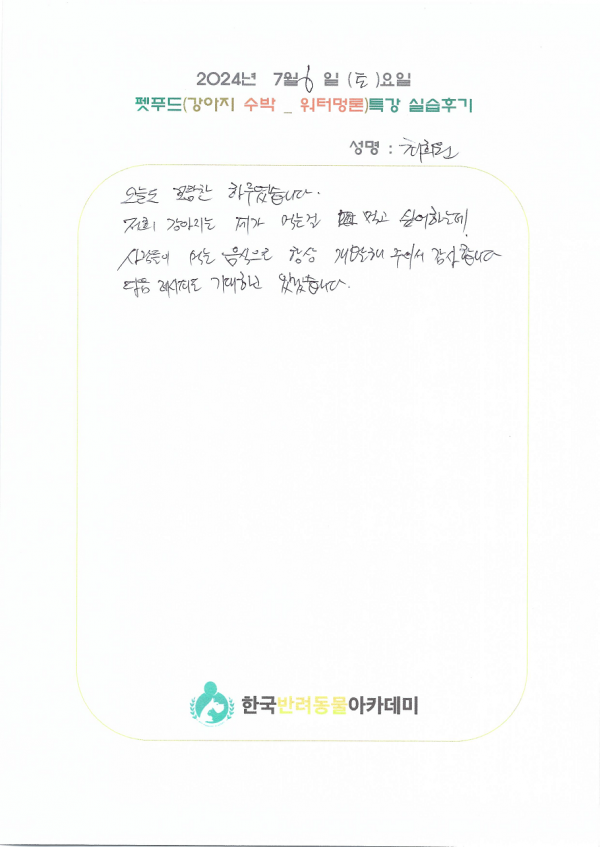 2024년 7월 6 일 (토)요일
펫푸드(강아지 수박 _ 워터멍론)특강 실습후기
성명 : 최희원
오늘도 보람찬 하루였습니다.
저희 강아지는 제가 먹는걸 먹고 싶어하는데
사람들이 먹는 음식으로 항상 개발해 주셔서 감사합니다
다음 레시피도 기대하고 있겠습니다.
한국반려동물아카데미